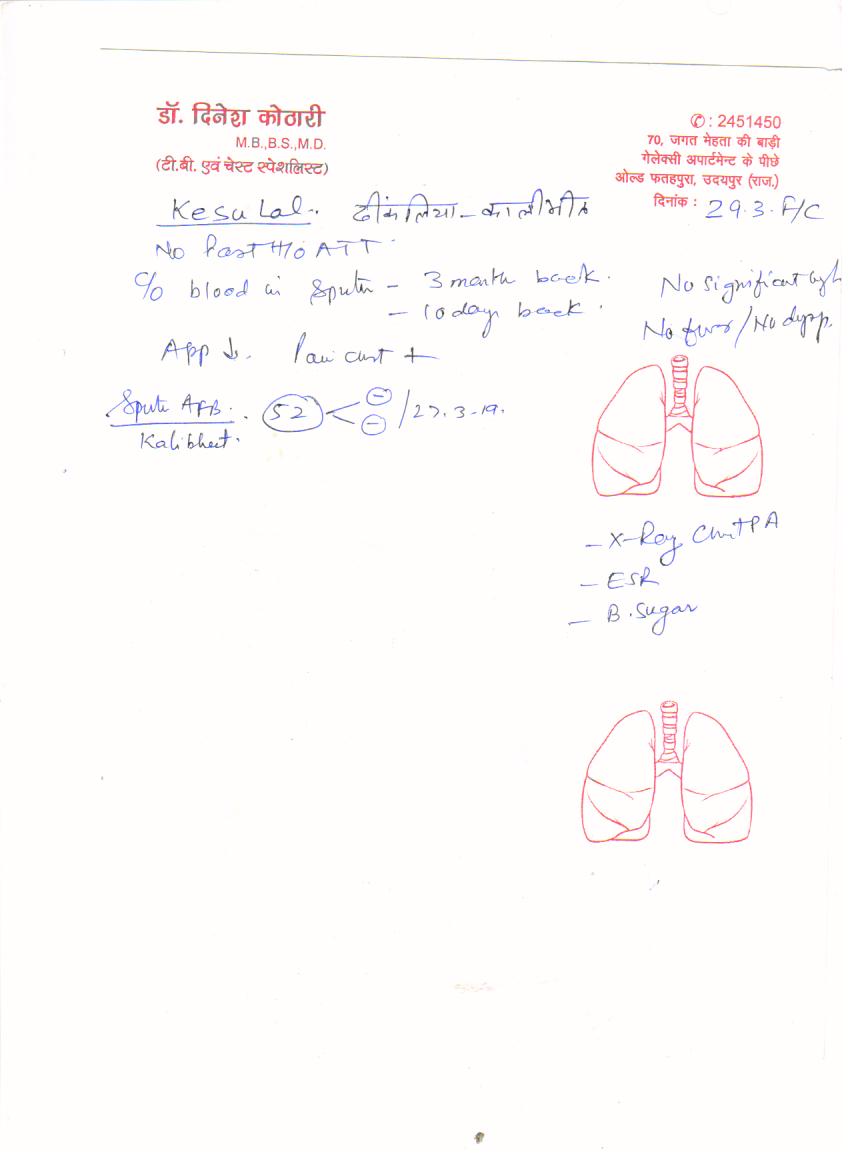 डॉ. दिनेश कोठारी
M.B.,B.S.,M.D.
(टी.बी. एवं चेस्ट स्पेशलिस्ट)
✆ : 2451450
70, जगत मेहता की बाड़ी
गेलेक्सी अपार्टमेन्ट के पीछे
ओल्ड फतहपुरा, उदयपुर (राज.)
दिनांक : 29.3. F/C
Kesu Lal. ढीकलिया - कालीभीत
No Past H/o ATT
C/o blood in Sputum - 3 month back.
- 10 days back.
No significant
No fever / No dysp.
App ↓. Pain chest +
Sputum AFB. 52 < ⊖ ⊖ / 27.3-19.
Kalibheet.
- X-Ray Chest PA
- ESR
- B. Sugar